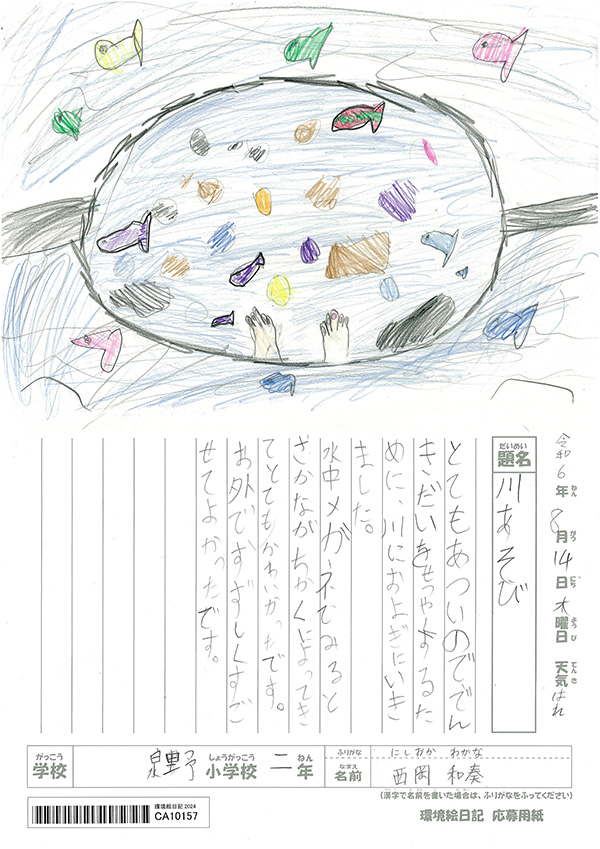 令和6年8月14日木曜日 天気はれ
ねん がつ にち ようび てんき
だいめい
題名
川あそび
とてもあついのででん
きだいをせつやくするた
めに、川におよぎにいき
ました。
水中メガーネでみると
さかながちかくによってき
てとてもかわいかったです。
お外ですずしくすご
せてよかったです。
がっこう しょうがっこう ねん
学校 泉野 小学校 二年
ふりがな にしおか わかな
なまえ
名前 西岡 和奏
(漢字で名前を書いた場合は、ふりがなをふってください)
環境絵日記 応募用紙
環境絵日記2024
CA10157